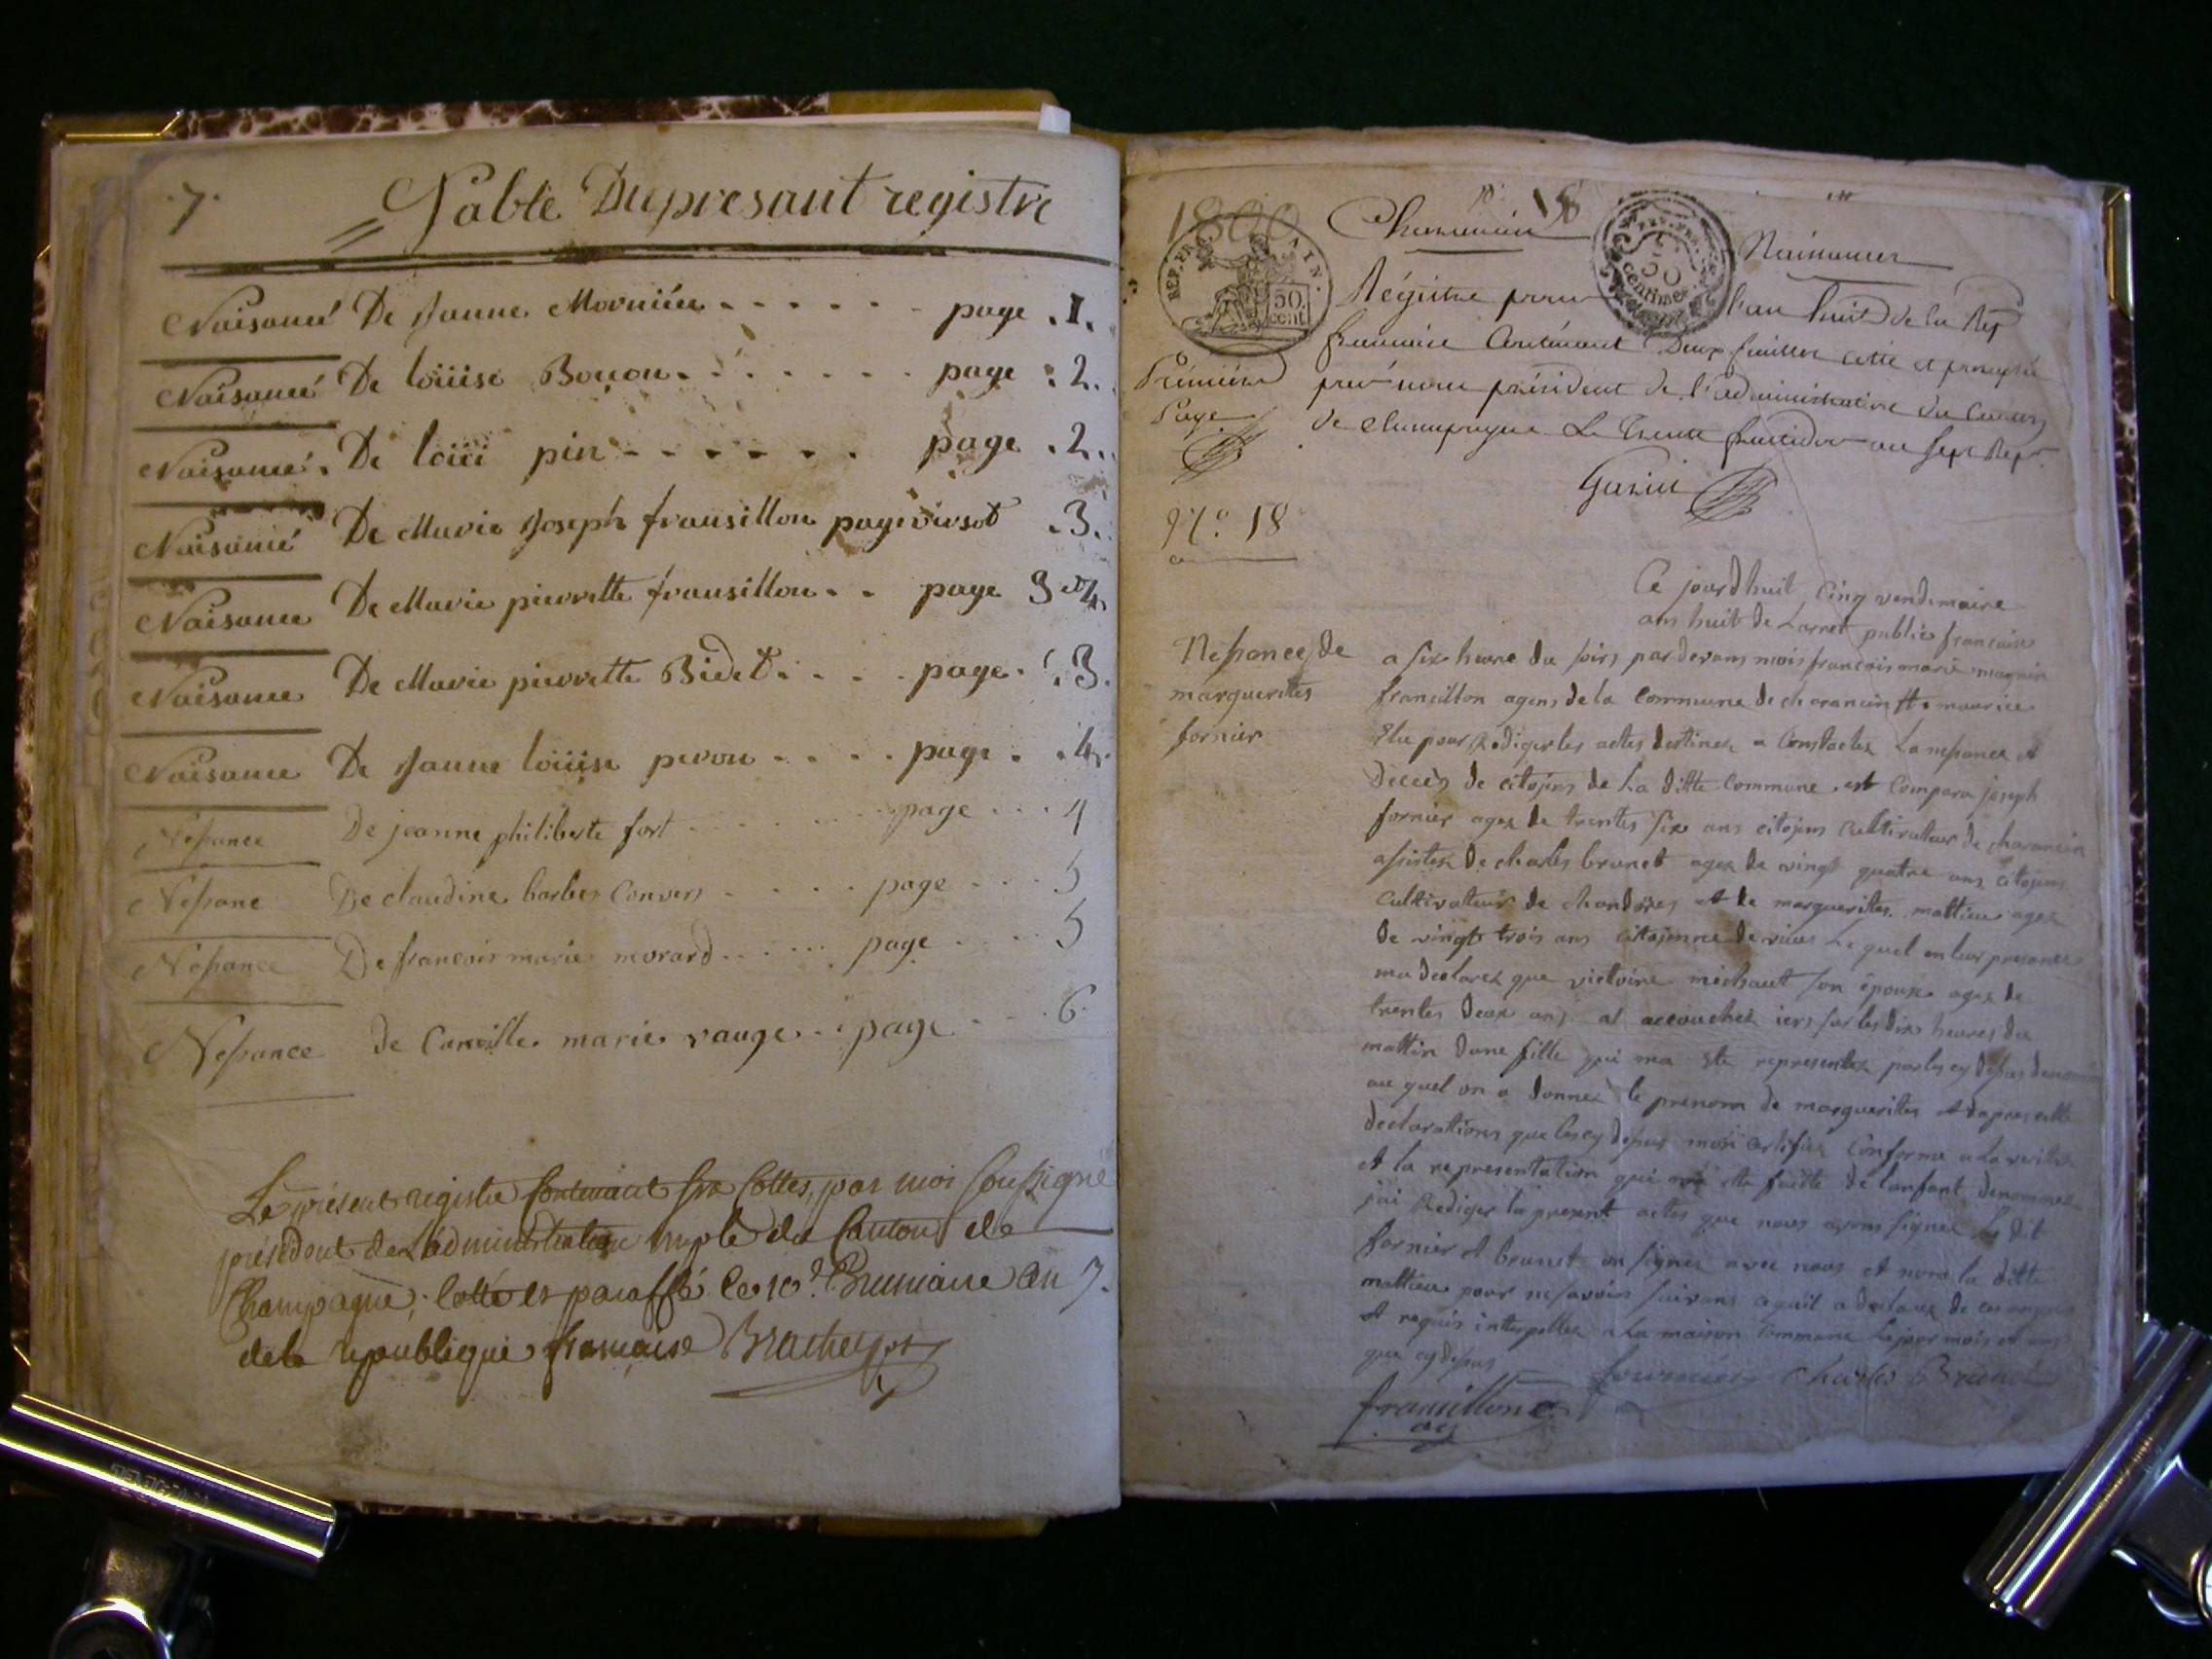 .7.
Table Du presant registre
Naisance De Janne Morniéu - - - - - - page .1.
Naisance De loüise Bouon . - . - - - - page : 2.
Naisance . De loüi pin - - - - - - . page . 2.
Naisance De Marie Joseph fransillon page versot .3.
Naisance De Marie pierrette fransillon . . page 3 et 4.
Naisance De Marie pierrette Bidet . . . . page . 3.
Naisance De Janne loüise peron - - - - page . . 4.
Nessance De jeanne philiberte fort - - - - page . . . 4
Nessance De claudine barbes Convers . . . . page . . . 5
Nessance De francois marie morard . . . . . page . . . 5
Nessance de Camille marie range . . . page . . . 6
Le présent registre contenant six cottes, par moi soussigné
président de L'administration mple du Canton de
Champagne, cotté et paraffé le 10e. Brumaire an 7.
de la republique francaise Brachet pt
1800
18
REP. FRA.
50.
cent
50
centimes
Charancin Naissances
Régistre pour l'an huit de la Rep
francaise Contenant Deux feuilles cotté et paraphé
Prémiére par nous président de l'administration du Canton
Page de champagne Le trente fructidor an sept Rep
Garin
N.º 18
Ce jourdhuit Cinq vendemaire
ans huit de Larret public francaise
Nessance de a six heure du soirs pardevans mois francois marie magnin
marguerites francillon agens de la Commune de charancin st. maurice
fornier Elu pour Rediger les actes destinez a Constactez La nessance et
Deccès de citojens de La ditte Commune est Compara joseph
fornier agez de trentes six ans citojens Cultivateur de charancin
assistez De charles brunet agez de vingt quatre ans citojens
Cultivatteur de chandoses et de marguerites mattieu agez
de vingt trois ans citojenne de vieu Le quel en leur presance
ma declarez que victoire michaut son épouse agez de
trentes deux ans at accouchez iers sur les dix heures du
mattin dune fille qui ma ete representez par les cy dessus denommez
au quel on a donnez le prenom de marguerites et dapres cette
declarattions que les cy dessus mon Certifiez Conforme a La verites
et la representation qui ma ette faitte de lanfant denommez
jai Rediger la present actes que nous avons signez Les dit
fornier et brunet on signez avec nous et nom la ditte
mattieu pour ne savoirs suivans ce quil a declarez de ces enquis
et requis interpellez a La maison Commune Le jour mois et ans
que cy dessus
fournier Charles Brunet
francillon
ag